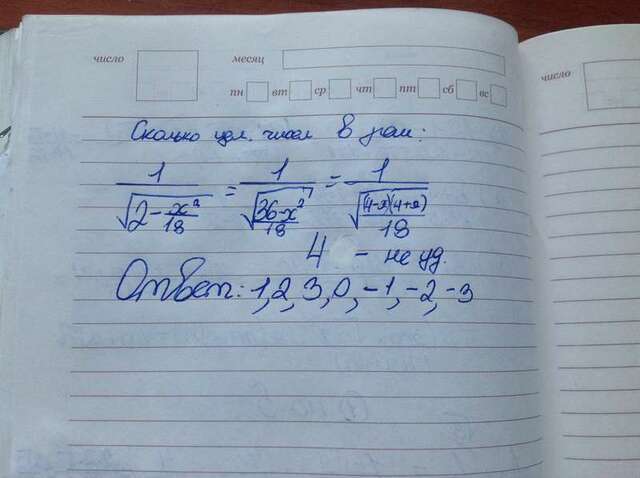 число месяц
пн вт ср чт пт сб вс
число
Сколько цел. чисел в реш:
1/√(2 - x²/18) = 1/√((36-x²)/18) = 1/√((4-x)(4+x)/18)
4 - не уд.
Ответ: 1, 2, 3, 0, -1, -2, -3